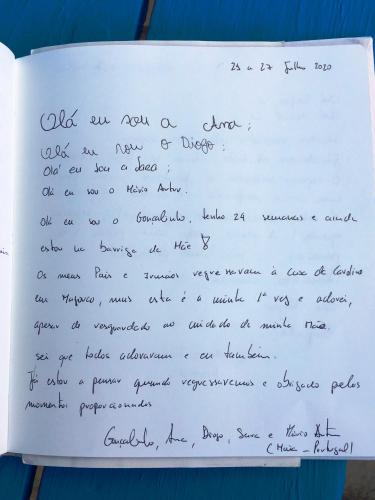 21 a 27 Julho 2020
Olá eu sou a Ana;
Olá eu sou o Diogo;
Olá eu sou a Sara;
Olá eu sou o Mário Artur.
Olá eu sou o Gonçalinho, tenho 24 semanas e ainda
estou na barriga da Mãe
Os meus Pais e Irmãos regressaram à Casa de
em, mas esta é a minha 1ª vez e adorei,
apesar de resguardado ao cuidado de minha Mãe.
sei que todos adoraram e eu também.
Já estou a pensar quando regressaremos e obrigado pelos
momentos proporcionados
Gonçalinho, Ana, Diogo, Sara e Mário Artur
(Maia - Portugal)